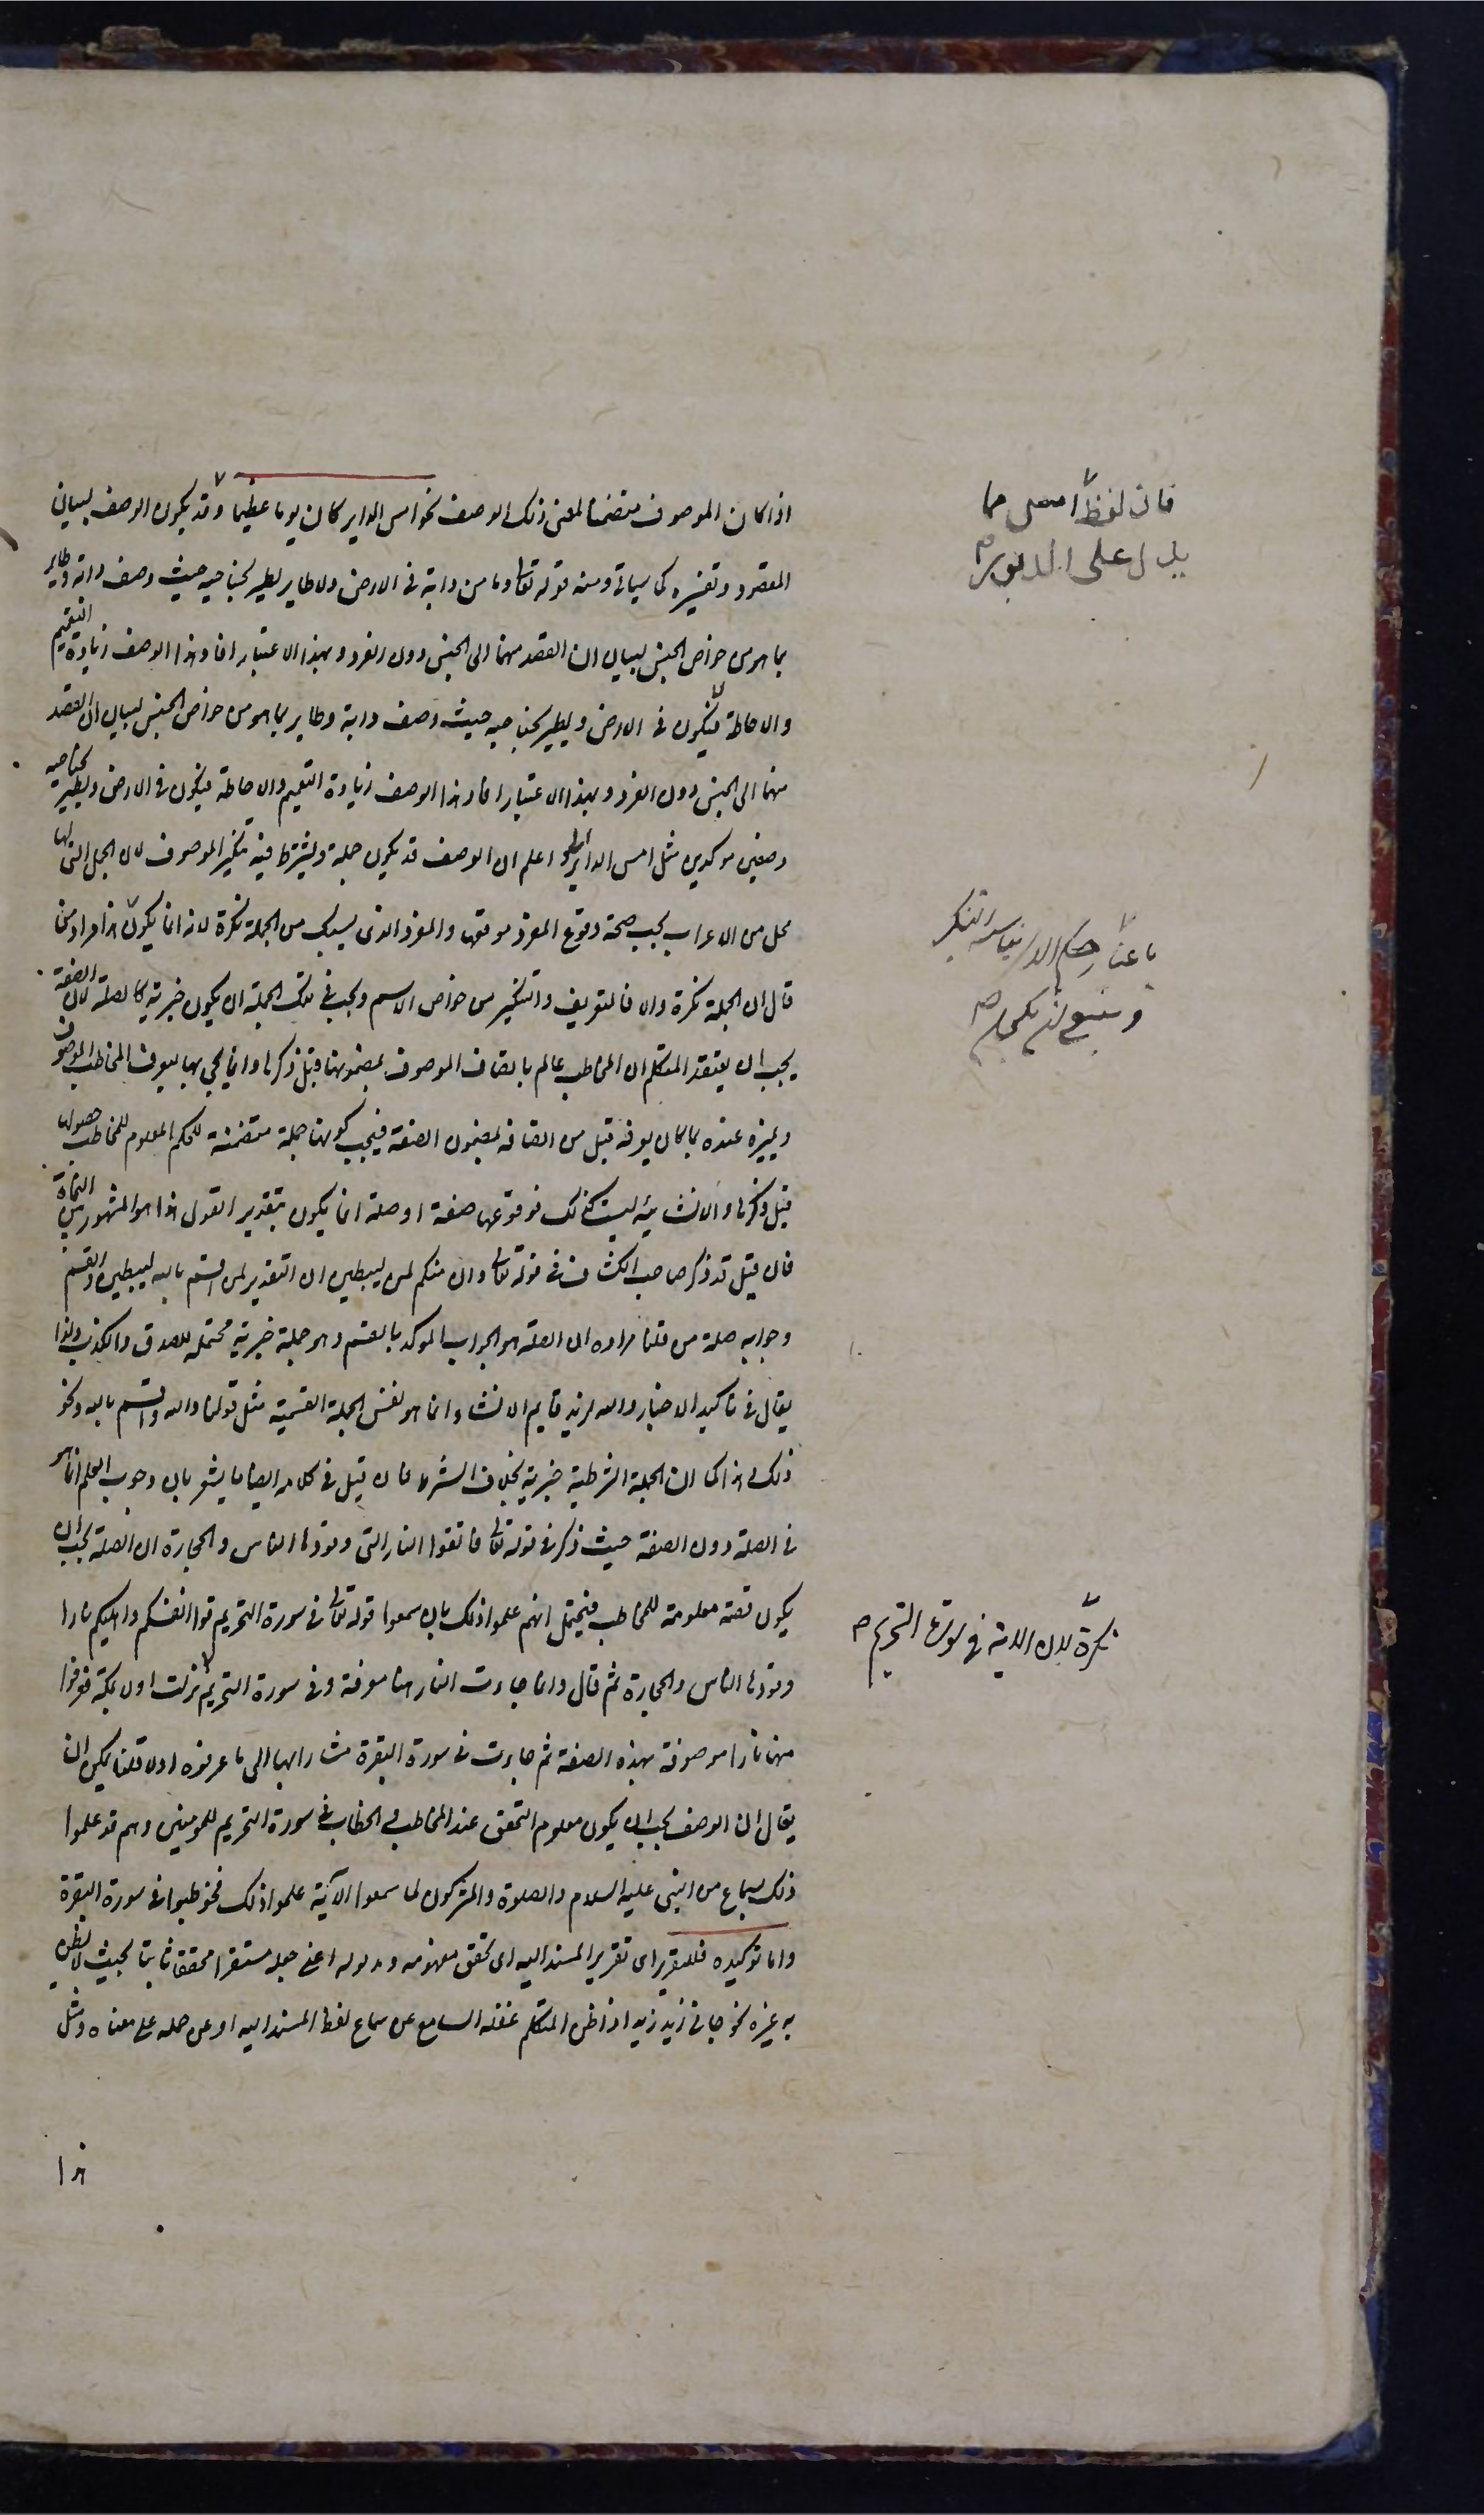 اذا كان الموصوف متضمنا لمعنى ذلك الوصف نحو امس الدابر كان يوما عظيما وقد يكون الوصف لبيان
المقصود وتفسيره كما سياتى ومنه قوله تعالى وما من دابة فى الارض ولا طاير يطير بجناحيه حيث وصف دابة وطاير
بما هو من خواص الجنس لبيان ان القصد منهما الى الجنس دون الفرد وبهذا الاعتبار افاد هذا الوصف زيادة التعميم
والاحاطة فيكون فى الارض ويطير بجناحيه حيث وصف دابة وطاير بما هو من خواص الجنس لبيان ان القصد
منهما الى الجنس دون الفرد وبهذا الاعتبار افاد هذا الوصف زيادة التعميم والاحاطة فيكون فى الارض ويطير بجناحيه
وصفين موكدين مثل امس الدابر واعلم ان الوصف قد يكون جملة ويشترط فيه تنكير الموصوف لان الجمل التى لها
محل من الاعراب يجب صحة وقوع المفرد موقعها والمفرد الذى يسبك من الجملة نكرة لانه انما يكون هذا مراد من
قال ان الجملة نكرة والا فالتعريف والتنكير من خواص الاسم ويجب فى تلك الجملة ان يكون خبرية كالصلة لان الصفة
يجب ان يعتقد المتكلم ان المخاطب عالم باتصاف الموصوف بمضمونها قبل ذكرها وانما يجى بها ليعرف المخاطب الموصوف
ويميزه عنده بما كان يعرفه قبل من اتصافه بمضمون الصفة فيجب كونها جملة متضمنة للحكم المعلوم للمخاطب حصوله
قبل ذكرها والانشائية ليست كذلك فوقوعها صفة او صلة انما يكون بتقدير القول هذا هو المشهور من النحاة
فان قيل قد ذكر صاحب الكشاف فى قوله تعالى وان منكم لمن ليبطين ان التقدير لمن اقسم بالله ليبطين والقسم
وجوابه صلة من قلنا مراده ان الصلة هو الجواب الموكد بالقسم وهو جملة خبرية محتملة للصدق والكذب ولذا
يقال فى تاكيد الاخبار والله لزيد قايم والانشاء انما هو نفس الجملة القسمية مثل قولنا والله واقسم بالله ونحو
ذلك وهذا كما ان الجملة الشرطية خبرية بخلاف الشرط فان قيل فى كلامه ايضا ما يشعر بان وجوب العلم انما هو
فى الصلة دون الصفة حيث ذكر فى قوله تعالى فاتقوا النار التى وقودها الناس والحجارة ان الصلة يجب ان
يكون قصة معلومة للمخاطب فيحتمل انهم علموا ذلك بان سمعوا قوله تعالى فى سورة التحريم قوا انفسكم واهليكم نارا
وقودها الناس والحجارة ثم قال وانما جاءت النار هنا معرفة وفى سورة التحريم نزلت اولا بمكة فعرفوا
منها نارا موصوفة بهذه الصفة ثم جاءت فى سورة البقرة مشارا بها الى ما عرفوه اولا قلنا يمكن ان
يقال ان الوصف يجب ان يكون معلوم التحقق عند المخاطب والخطاب فى سورة التحريم للمومنين وهم قد علموا
ذلك بسماع من النبى عليه السلام والصلوة والمشركون لما سمعوا الآية علموا ذلك فخوطبوا فى سورة البقرة
واما توكيده فللتقرير اى تقرير المسند اليه اى تحقق مفهومه ومدلوله اعنى جعله مستقرا محققا ثابتا بحيث لا يظن
به غيره نحو جانى زيد زيد اذا ظن المتكلم غفلة السامع عن سماع لفظ المسند اليه او عن حمله على معناه ومثل
هذا
فان لفظ امس مما
يدل على الدبور
باعتبار حكم الذى يناسبه التنكير
وينبغى ان يكون
نكرة لان الاية فى سورة التحريم